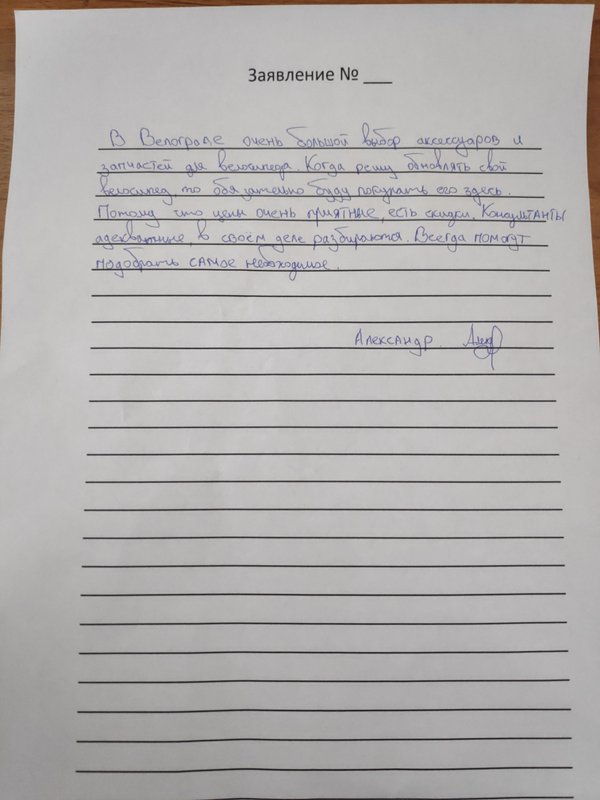 Заявление № ___
В Велограде очень большой выбор аксессуаров и
запчастей для велосипеда. Когда решу обновлять свой
велосипед, то обязательно буду покупать его здесь.
Потому что цены очень приятные, есть скидки. Консультанты
адекватные, в своём деле разбираются. Всегда помогут
подобрать самое необходимое.
Александр